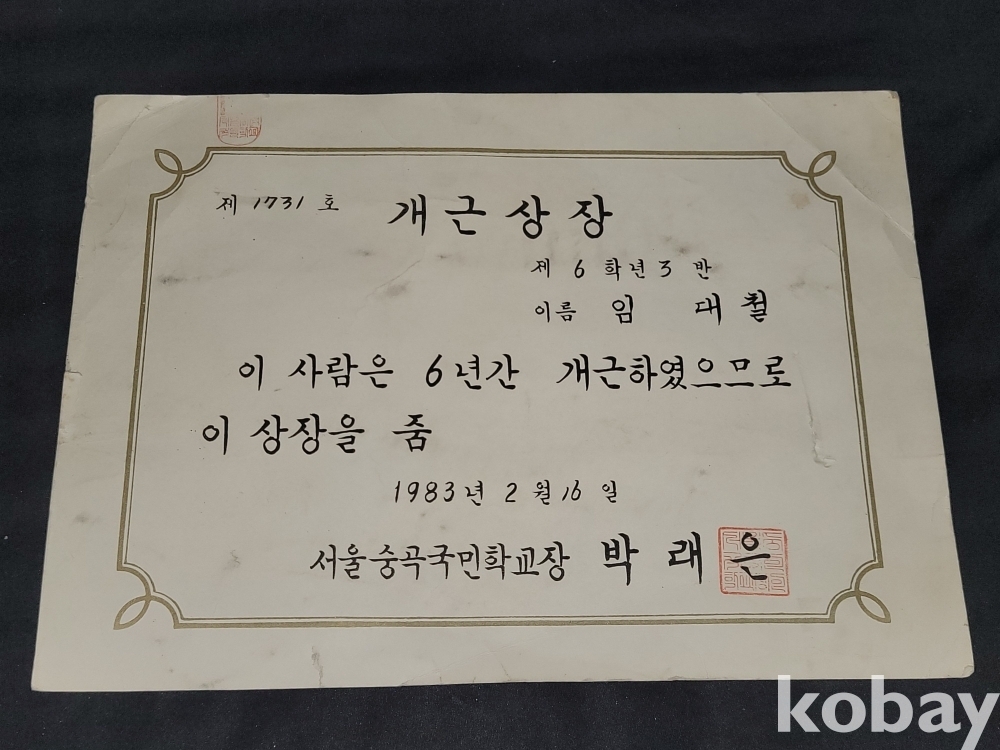 제 1731 호
개근상장
제 6 학년 3 반
이름 임 대철
이 사람은 6년간 개근하였으므로
이 상장을 줌
1983년 2월 16일
서울중곡국민학교장 박래은
kobay